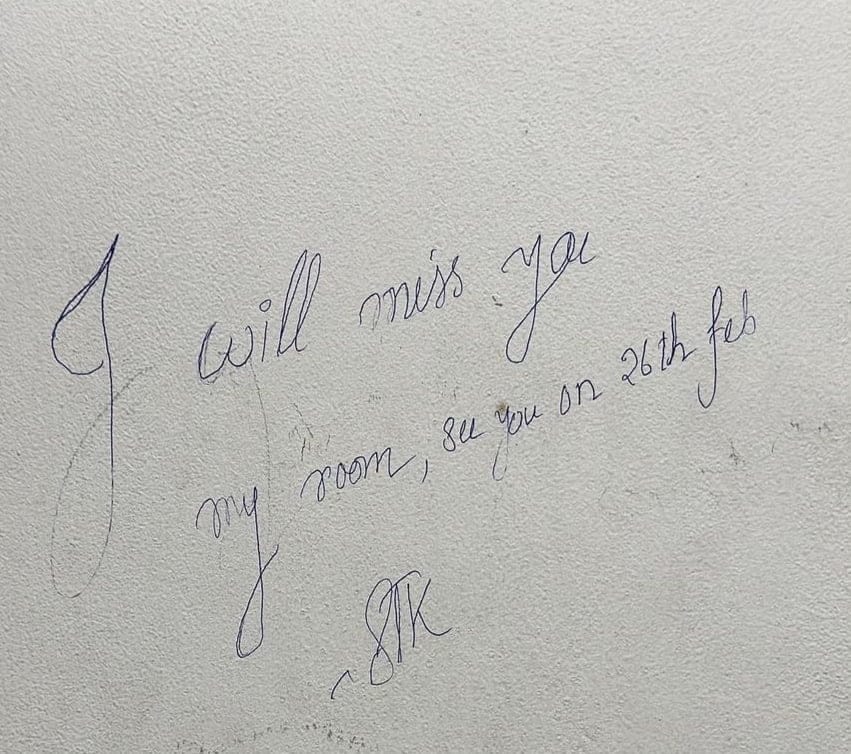 I will miss you
my room, see you on 26th feb
~STK